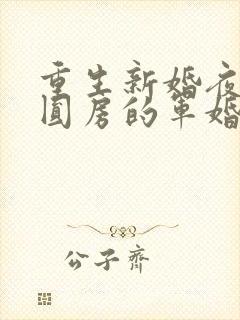 重生新婚夜
圆房的军婚
公子齐